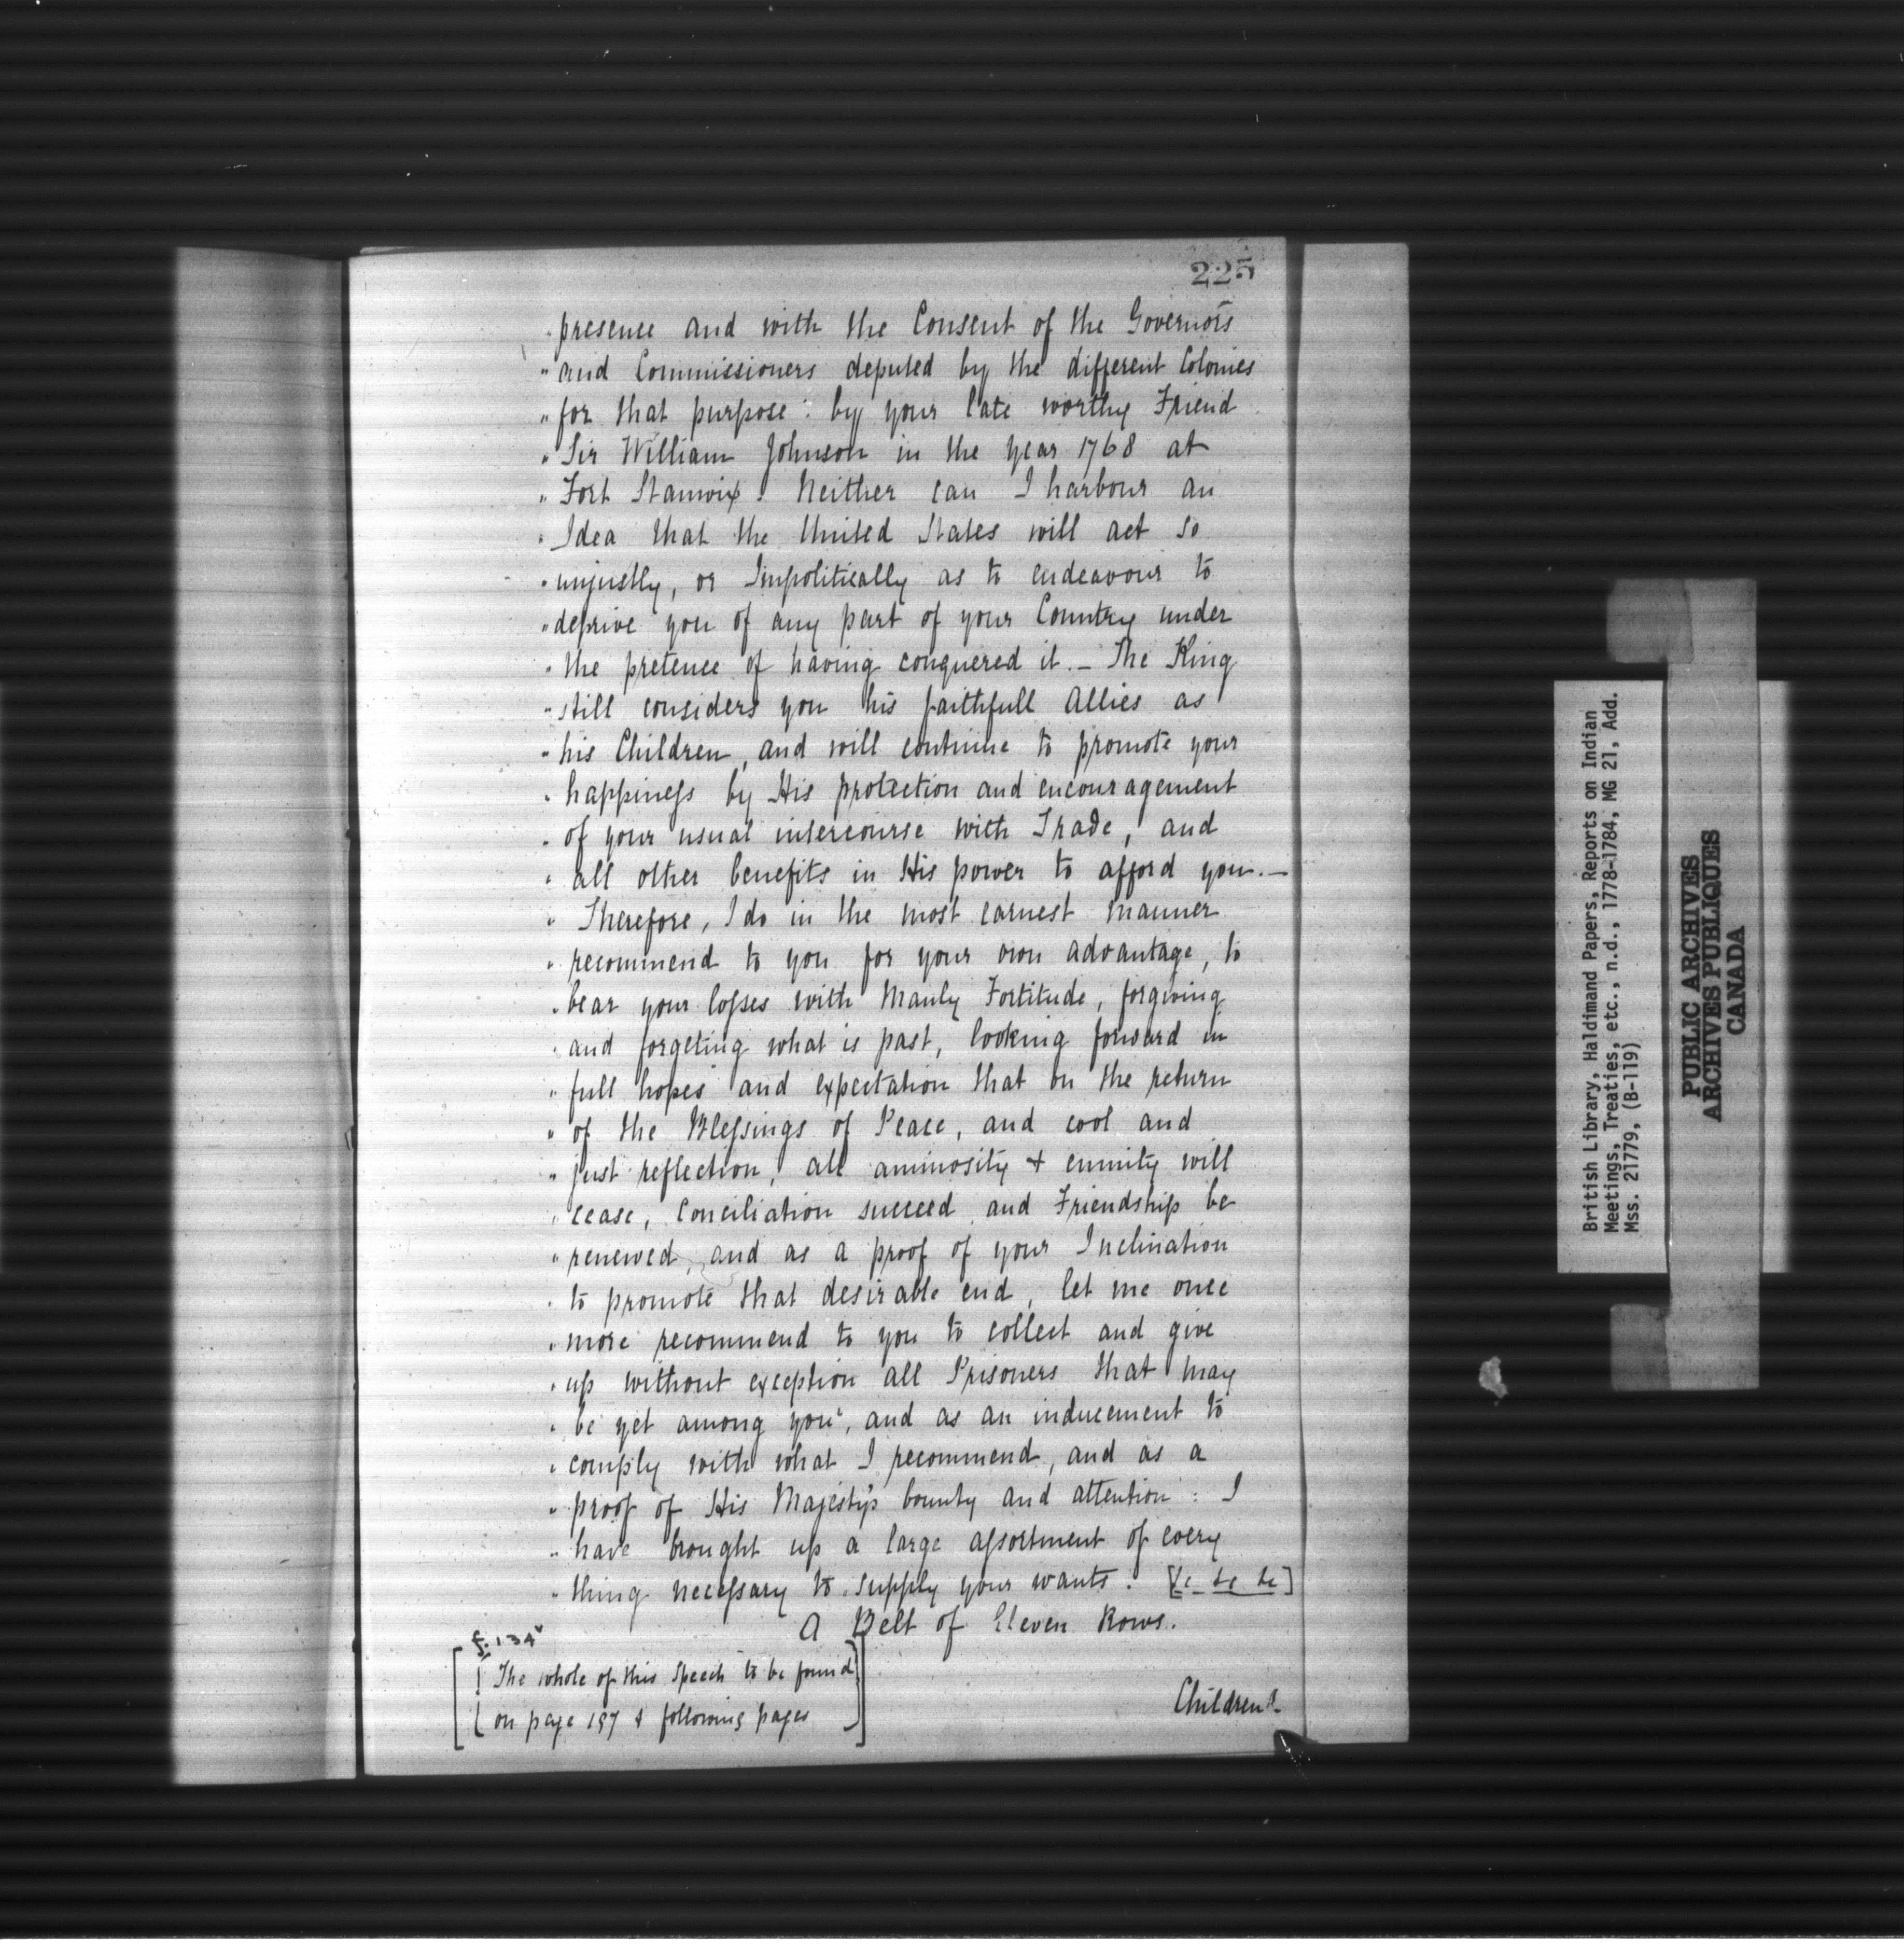 225
presence and with the Consent of the Governors
" and Commissioners deputed by the different Colonies
" for that purpose : by your late worthy Friend
" Sir William Johnson in the year 1768 at
" Fort Stanwix : Neither can I harbour an
" Idea that the United States will act so
" unjustly, or Impolitically as to endeavour to
" deprive you of any part of your Country under
" the pretence of having conquered it. – The King
" still considers you his faithfull Allies as
" his Children, and will continue to promote your
" happiness by His protection and encouragement
" of your usual intercourse with Trade, and
" all other benefits in His power to afford you. –
" Therefore, I do in the most earnest manner
" recommend to you for your own advantage, to
" bear your losses with Manly Fortitude, forgiving
" and forgeting what is past, looking forward in
" full hopes and expectation that on the return
" of the Blessings of Peace, and cool and
" just reflection, all aminosity + enmity will
" cease, Conciliation succeed and Friendship be
" renewed, and as a proof of your Inclination
" to promote that desirable end, let me once
" more recommend to you to collect and give
" up without exception all Prisoners that may
" be yet among you, and as an inducement to
" comply with what I recommend, and as a
" proof of His Majesty's bounty and attention : I
" have brought up a large assortment of every
" thing necessary to supply your wants. [&c &c &c]
A Belt of Eleven Rows.
f. 134v
[The whole of this Speech to be found
on page 197 & following pages]
Children
British Library, Haldimand Papers, Reports on Indian
Meetings, Treaties, etc., n.d., 1778-1784, MG 21, Add.
Mss. 21779, (B-119)
PUBLIC ARCHIVES
ARCHIVES PUBLIQUES
CANADA